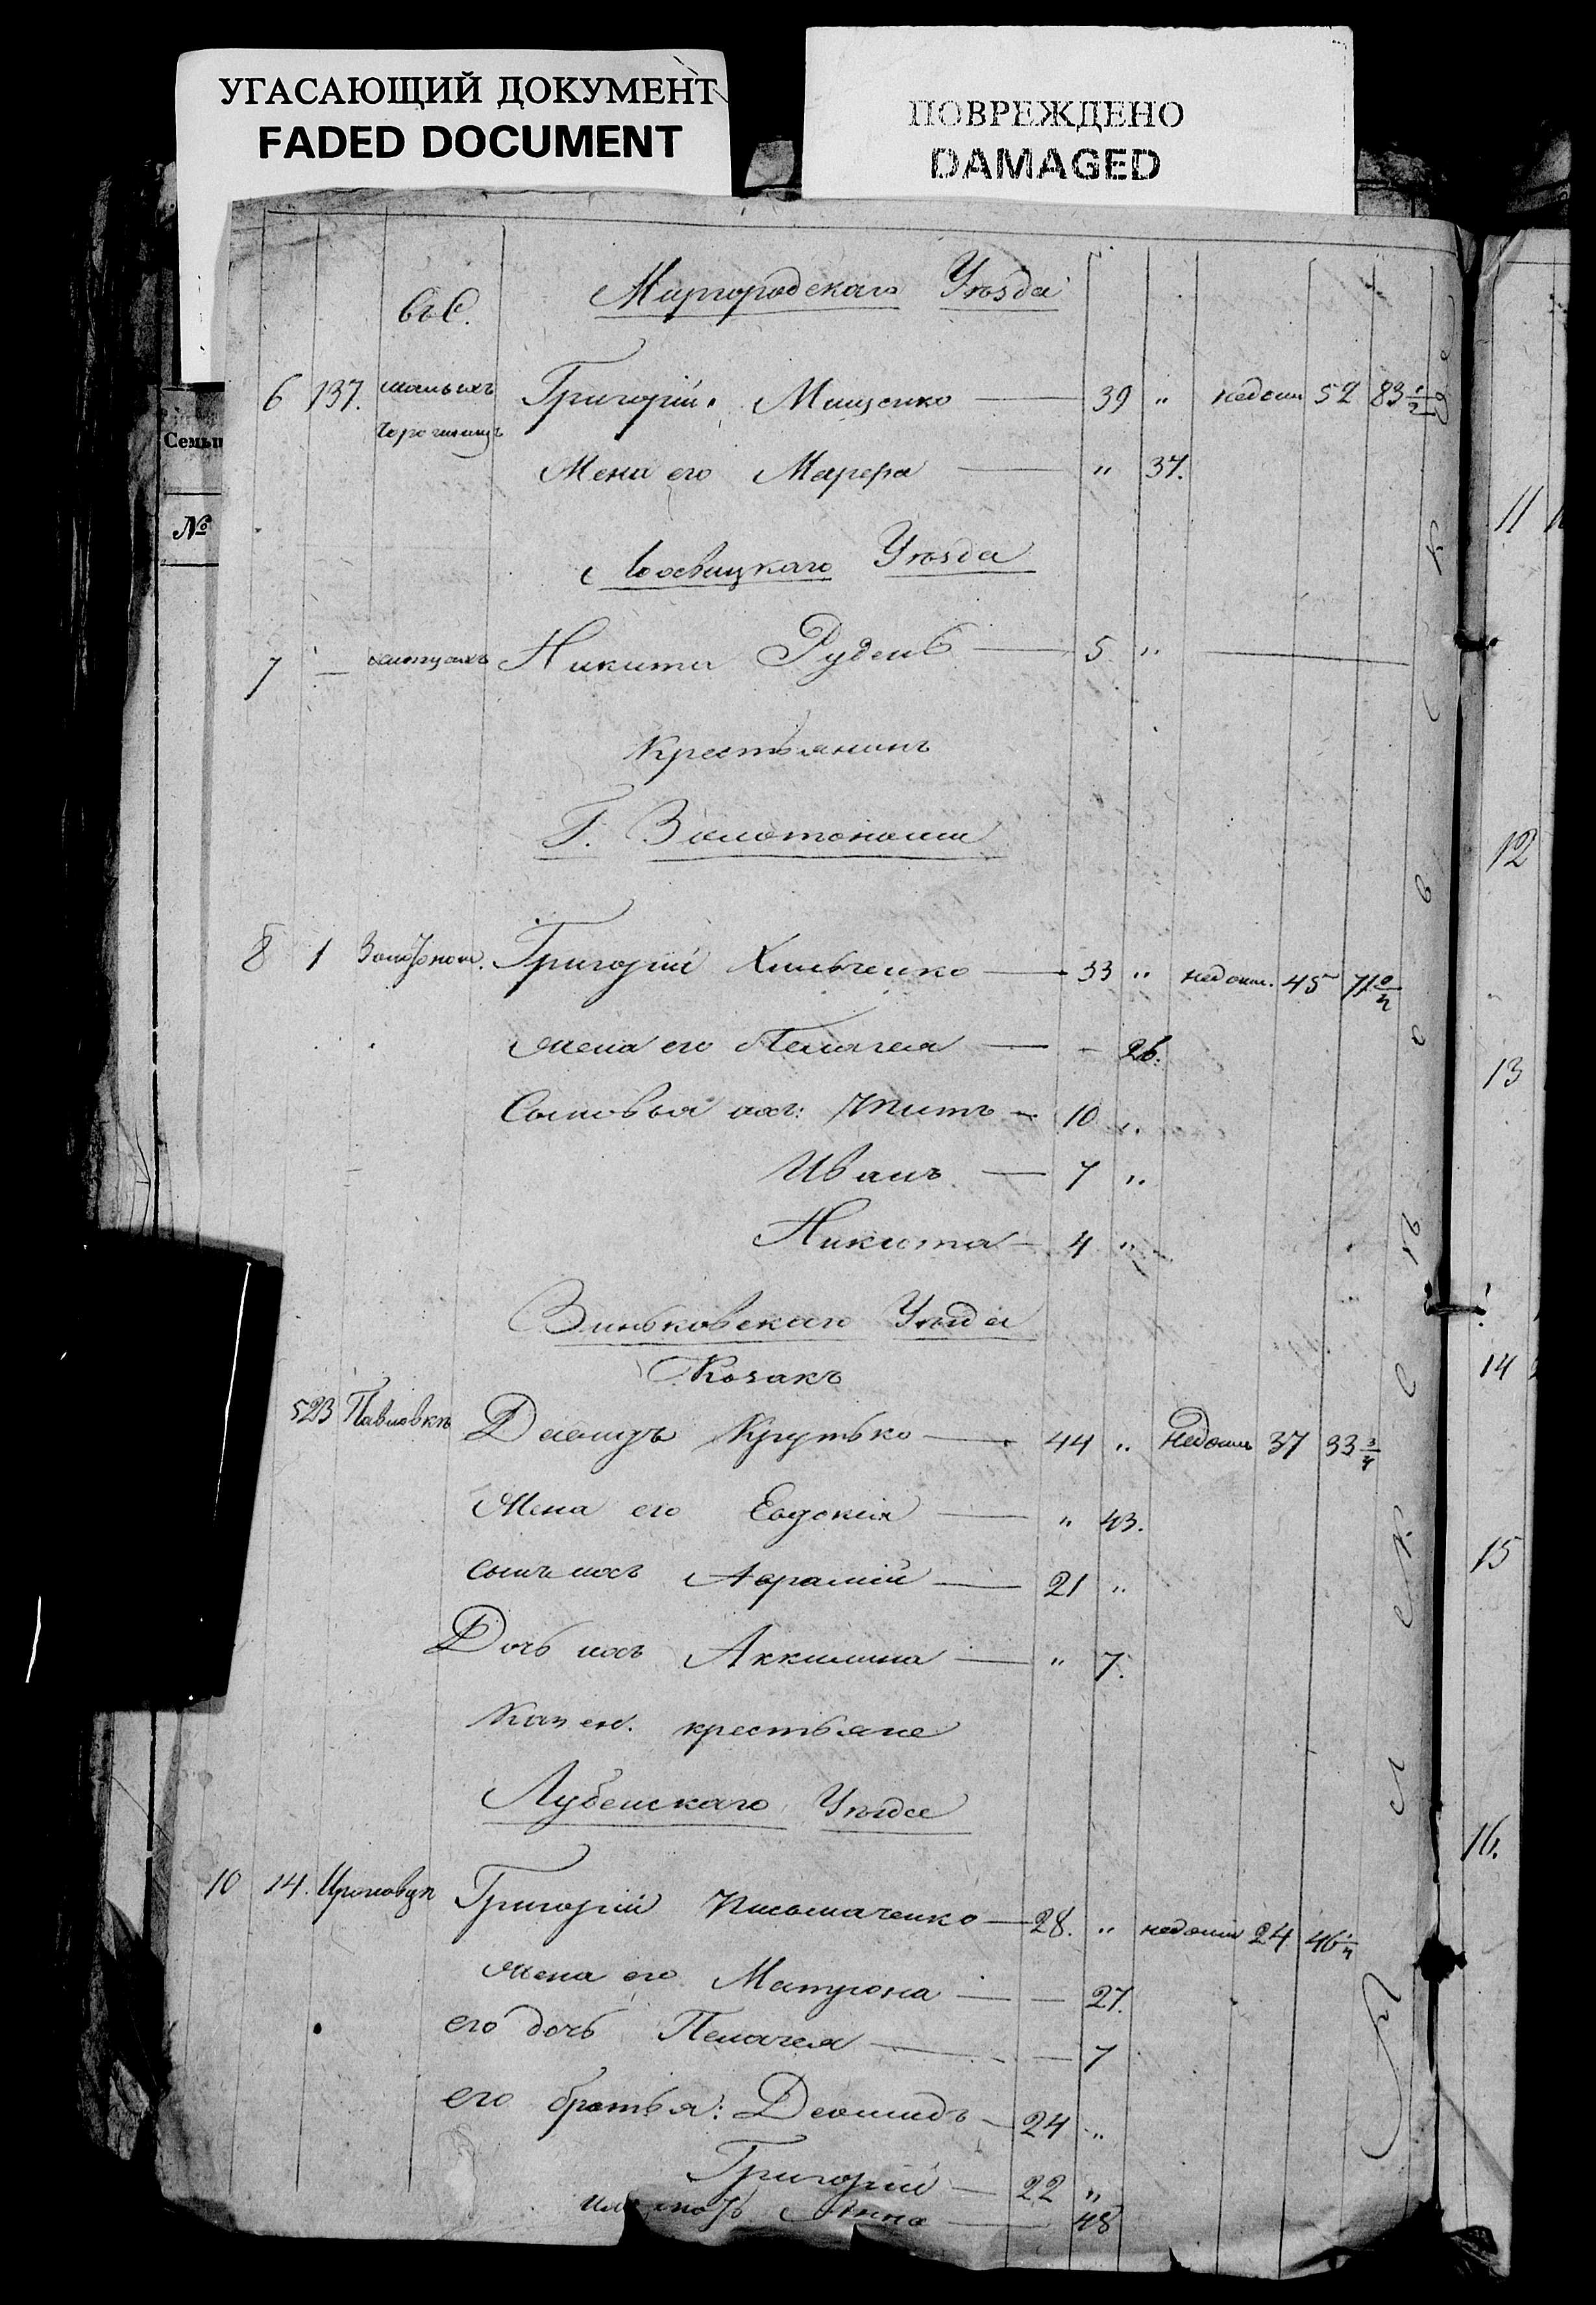 УГАСАЮЩИЙ ДОКУМЕНТ
FADED DOCUMENT
ПОВРЕЖДЕНО
DAMAGED
Семьи
№
Миргородскаго Уѣзда
въ С.
6 137. Григорій Мищенко — 39 " недоим 52 83 1/2
Жена его Марфа — " 37.
Лохвицкаго Уѣзда
7 — Никита Рудень — 5 "
Крестьянинъ
Г. Золотоноши
8 1 Золотонош. Григорій Хильченко — 33 " недоим. 45 71
жена его Пелагея — - 26.
Сыновья ихъ: Титъ — 10 "
Иванъ — 7 "
Никита — 4 "
Зиньковскаго Уѣзда
Козакъ
523 Павловкѣ Діомидъ Крутько — 44 " Недоим 37 33 3/4
Жена его Евдокія — " 43.
сынъ ихъ Аврамій — 21 "
Дочь ихъ Аккилина — " 7.
Казен. крестьяне
Лубенскаго Уѣзда
10 14. Григорій Письмаченко — 28. " недоим 24 46 1/4
жена его Матрона — — 27.
его дочь Пелагея — — 7
его братья: Деомидъ — 24 "
Григорій — 22 "
ихъ мать Анна — 48
11
12
13
14
15
16.